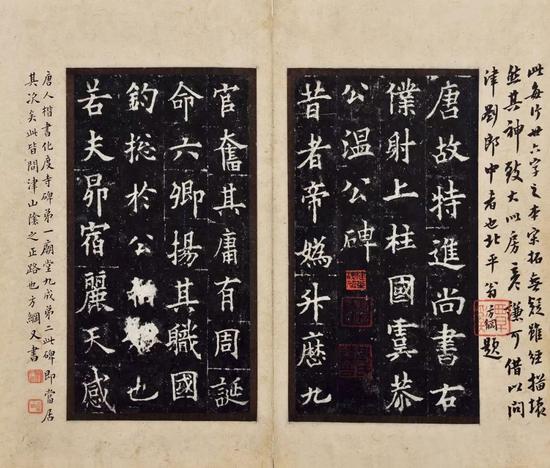 此每行卅六字之本宋拓無疑雖經描
然其神致大似房彥謙可借以問
津劉郎中者也北平翁方綱題
唐故特進尚書右
僕射上柱國虞恭
公溫公碑
昔者帝媯升歷九
官奮其庸有周誕
命六卿揚其職國
鈞揔於公相也
若夫昴宿麗天感
唐人楷書化度寺碑弟一廟堂九成弟二此碑即當居
其次矣此皆問津山陰之正路也方綱又書